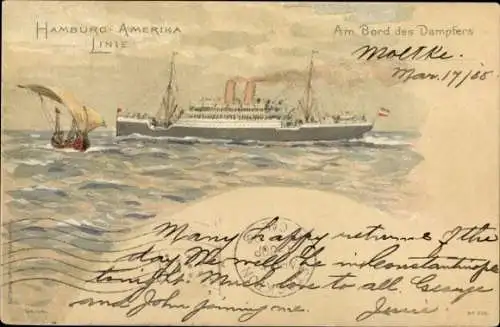 HAMBURG-AMERIKA
LINIE
Am Bord des Dampfers
Moltke.
Mar. 17/05
Many happy returns of the
day. We will be in Constantinople
tonight. Much love to all. George
and John joining me.
Jennie.